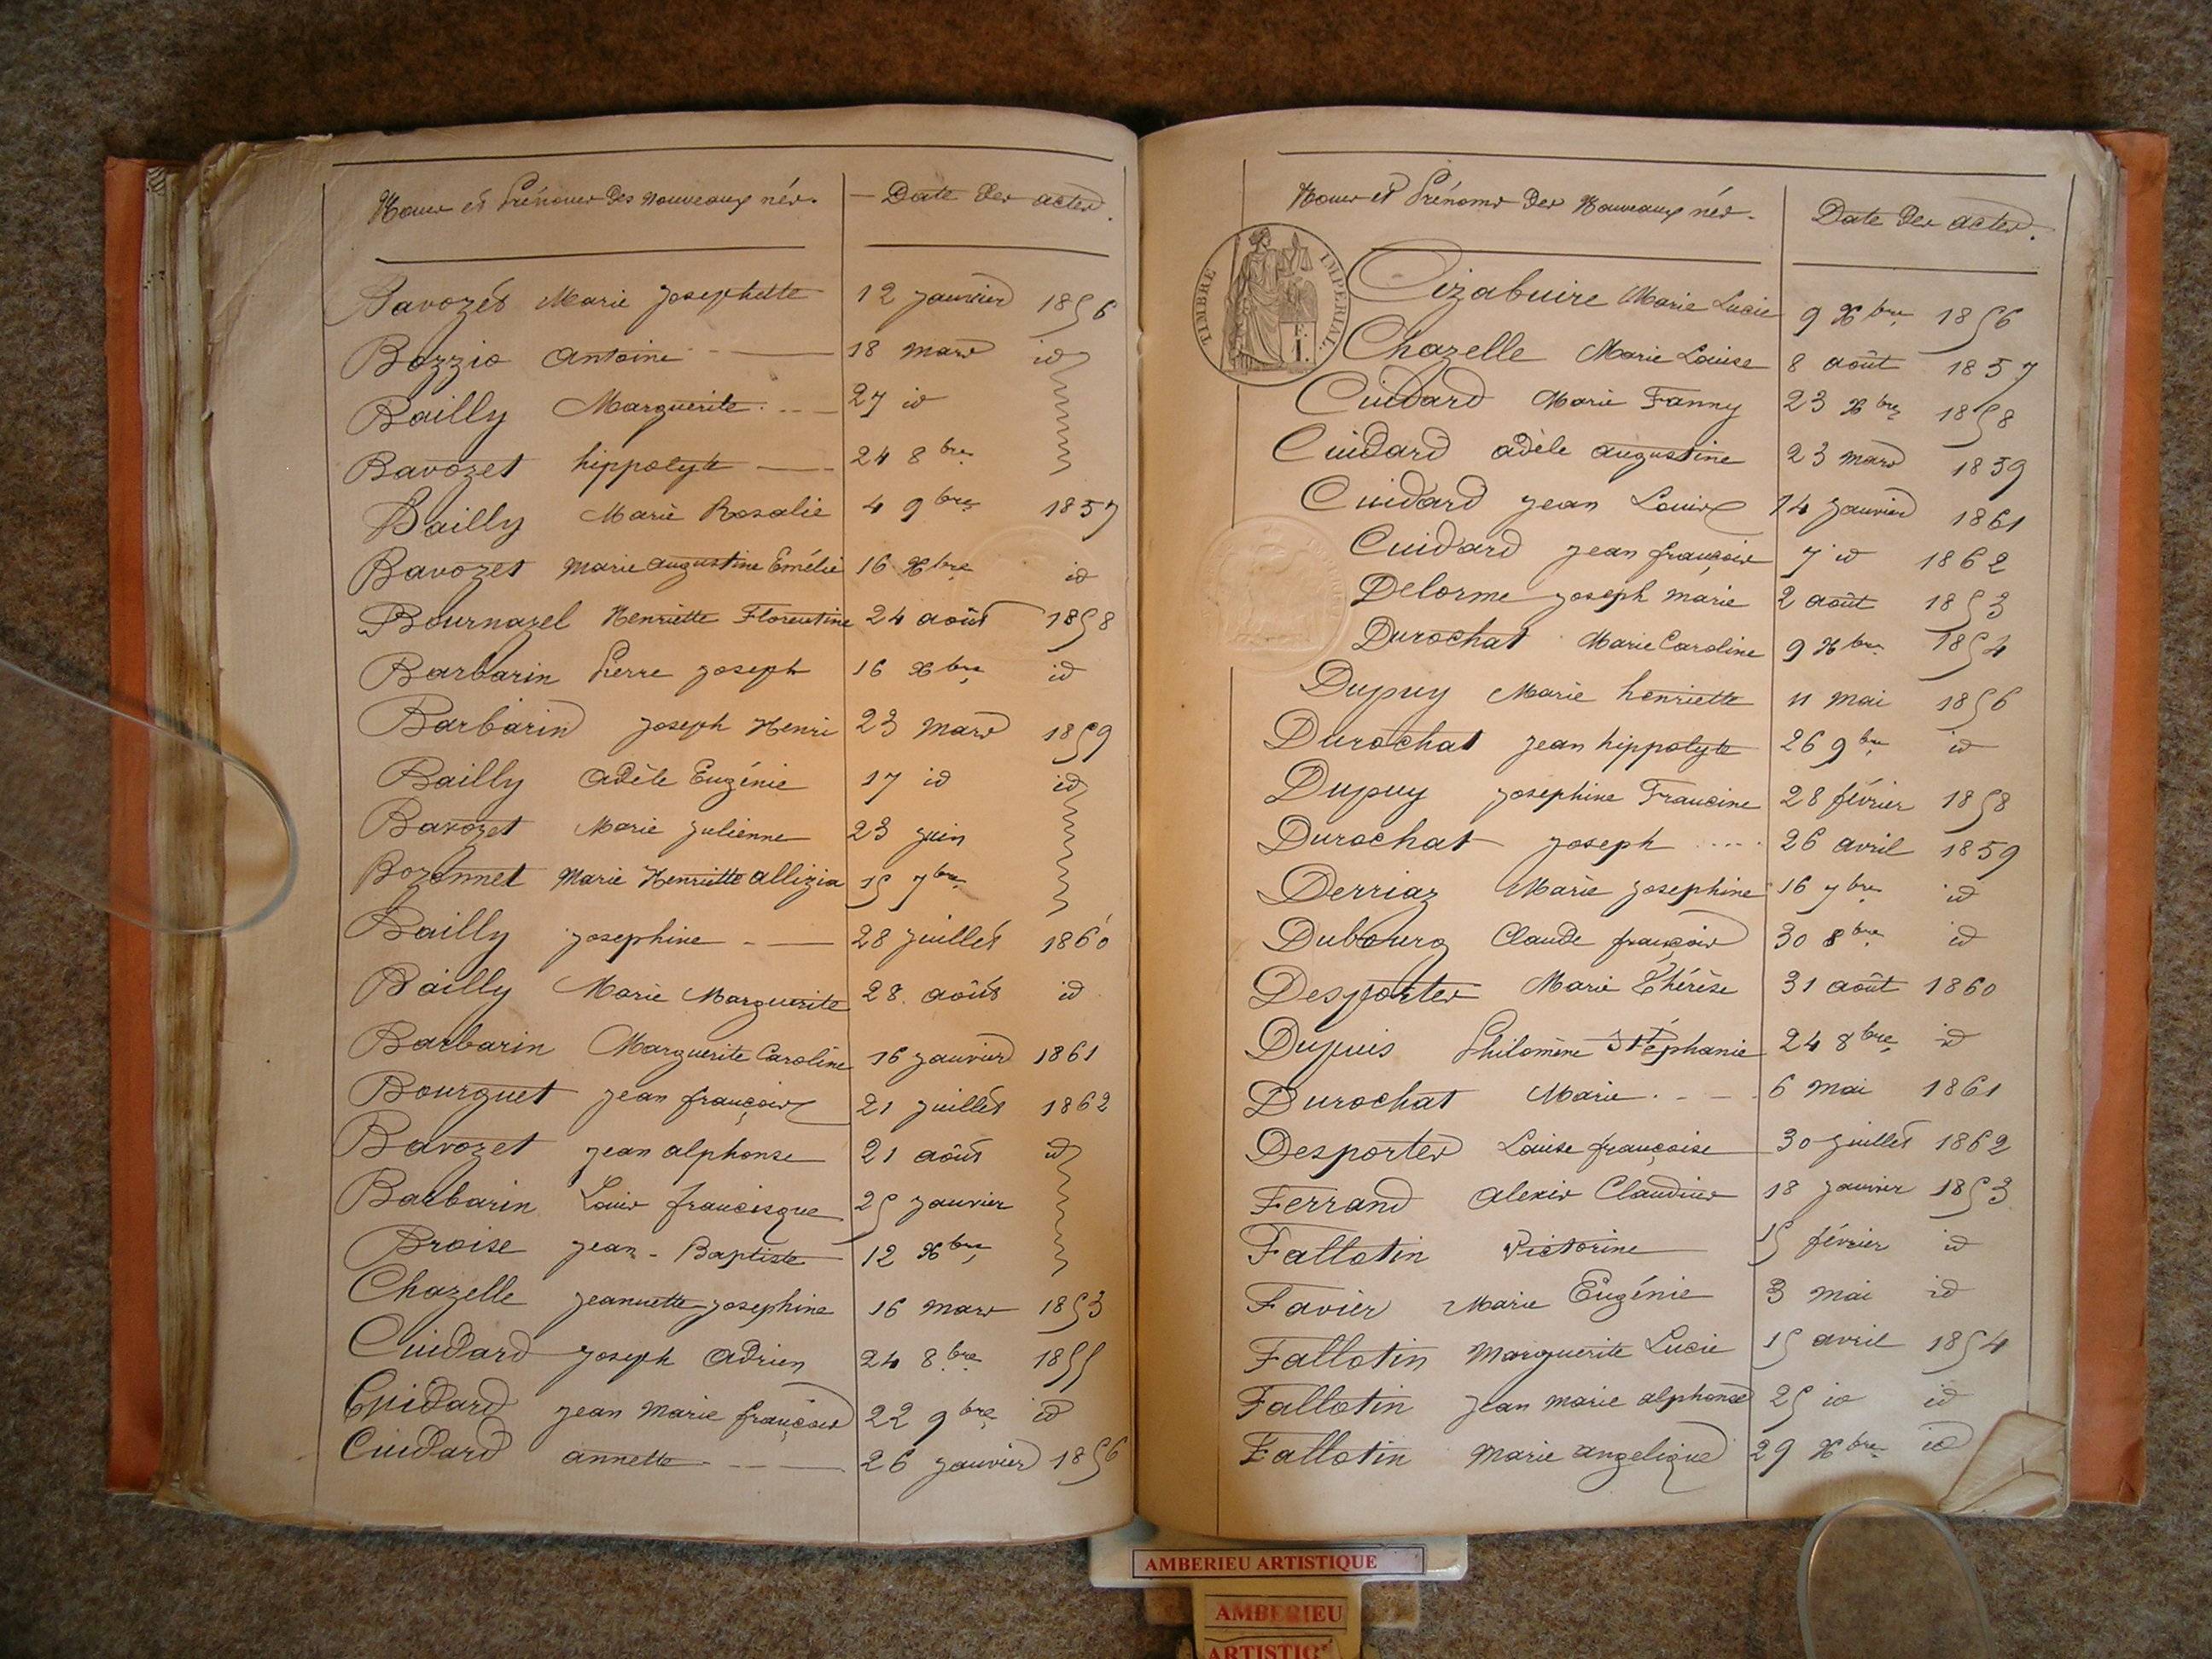 Noms et Prénoms des nouveaux nés. — Date des actes.
Bavozet Marie Josephette 12 janvier 1856
Bozzio Antoine 18 mars id
Bailly Marguerite 27 id
Bavozet hippolyte 24 8bre
Bailly Marie Rosalie 4 9bre 1857
Bavozet Marie augustine Emélie 16 Xbre id
Bournazel Henriette Florentine 24 août 1858
Barbarin Pierre joseph 16 Xbre id
Barbarin joseph Henri 23 mars 1859
Bailly Adèle Eugénie 17 id id
Bavozet Marie julienne 23 juin
Bozonnet Marie Henriette allizia 15 7bre
Bailly josephine 28 juillet 1860
Bailly Marie Marguerite 28 août id
Barbarin Marguerite Caroline 16 janvier 1861
Bourguet jean françois 21 juillet 1862
Bavozet jean alphonse 21 août id
Barbarin Louis francisque 25 janvier
Broise jean-Baptiste 12 Xbre
Chazelle jeannette josephine 16 mars 1853
Cuidard joseph adrien 24 8bre 1855
Cuidard jean marie françois 22 9bre id
Cuidard annette 26 janvier 1856
Noms et Prénoms des Nouveaux nés. Date des actes.
TIMBRE IMPÉRIAL
Cizabuire Marie Lucie 9 Xbre 1856
Chazelle Marie Louise 8 août 1857
Cuidard Marie Fanny 23 Xbre 1858
Cuidard adèle augustine 23 mars 1859
Cuidard jean Louis 14 janvier 1861
Cuidard jean françois 7 id 1862
Delorme joseph marie 2 août 1853
Durochat Marie Caroline 9 Xbre 1854
Dupuy Marie henriette 11 mai 1856
Durochat jean hippolyte 26 9bre id
Dupuy josephine Francine 28 février 1858
Durochat joseph 26 avril 1859
Derriaz Marie josephine 16 7bre id
Dubourg Claude françois 30 8bre id
Desportes Marie Thérèse 31 août 1860
Dupuis Philomène Stéphanie 24 8bre id
Durochat Marie 6 mai 1861
Desportes Louise françoise 30 juillet 1862
Ferrand alexis Claudius 18 janvier 1853
Fallotin Victorine 15 février id
Favier Marie Eugénie 3 mai id
Fallotin Marguerite Lucie 15 avril 1854
Fallotin jean marie alphonse 25 id id
Fallotin Marie angelique 29 Xbre id
AMBERIEU ARTISTIQUE
AMBERIEU
ARTISTIQ